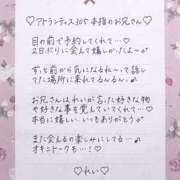 ♡アトランティス105 本指のお兄さん♡
目の前で予約してくれて…♡
2日ぶりに会えて嬉しかったよ〜♪
ずっと前から気になるれ〜って話し
てた場所に来れてるんるん♪
お兄さんはれいが言った好きな物
や好きな事を覚えていてくれて…♡
本当に嬉しい、いもありがとう
また会えるの楽しみにしてる…♪
オキニトークも…！♡
♡れい♡